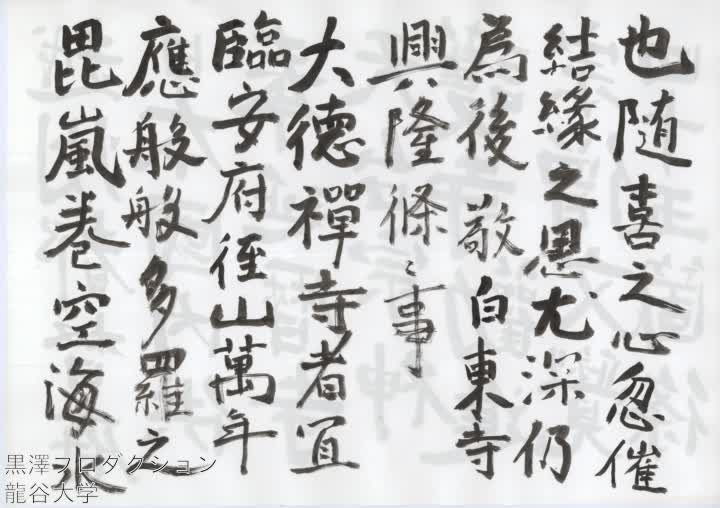 也随喜之心忽催
結縁之思尤深仍
為後 敬白東寺
興隆條々事
大德禪寺者宜
臨安府徑山萬年
應般般多羅之
毘嵐卷空海水
黒澤プロダクション
龍谷大学